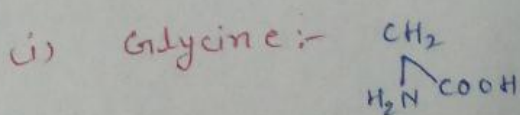 (i) Glycine :- CH2
H2N COOH